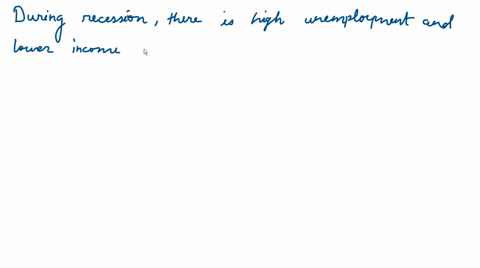 During recession, there is high unemployment and
lower income